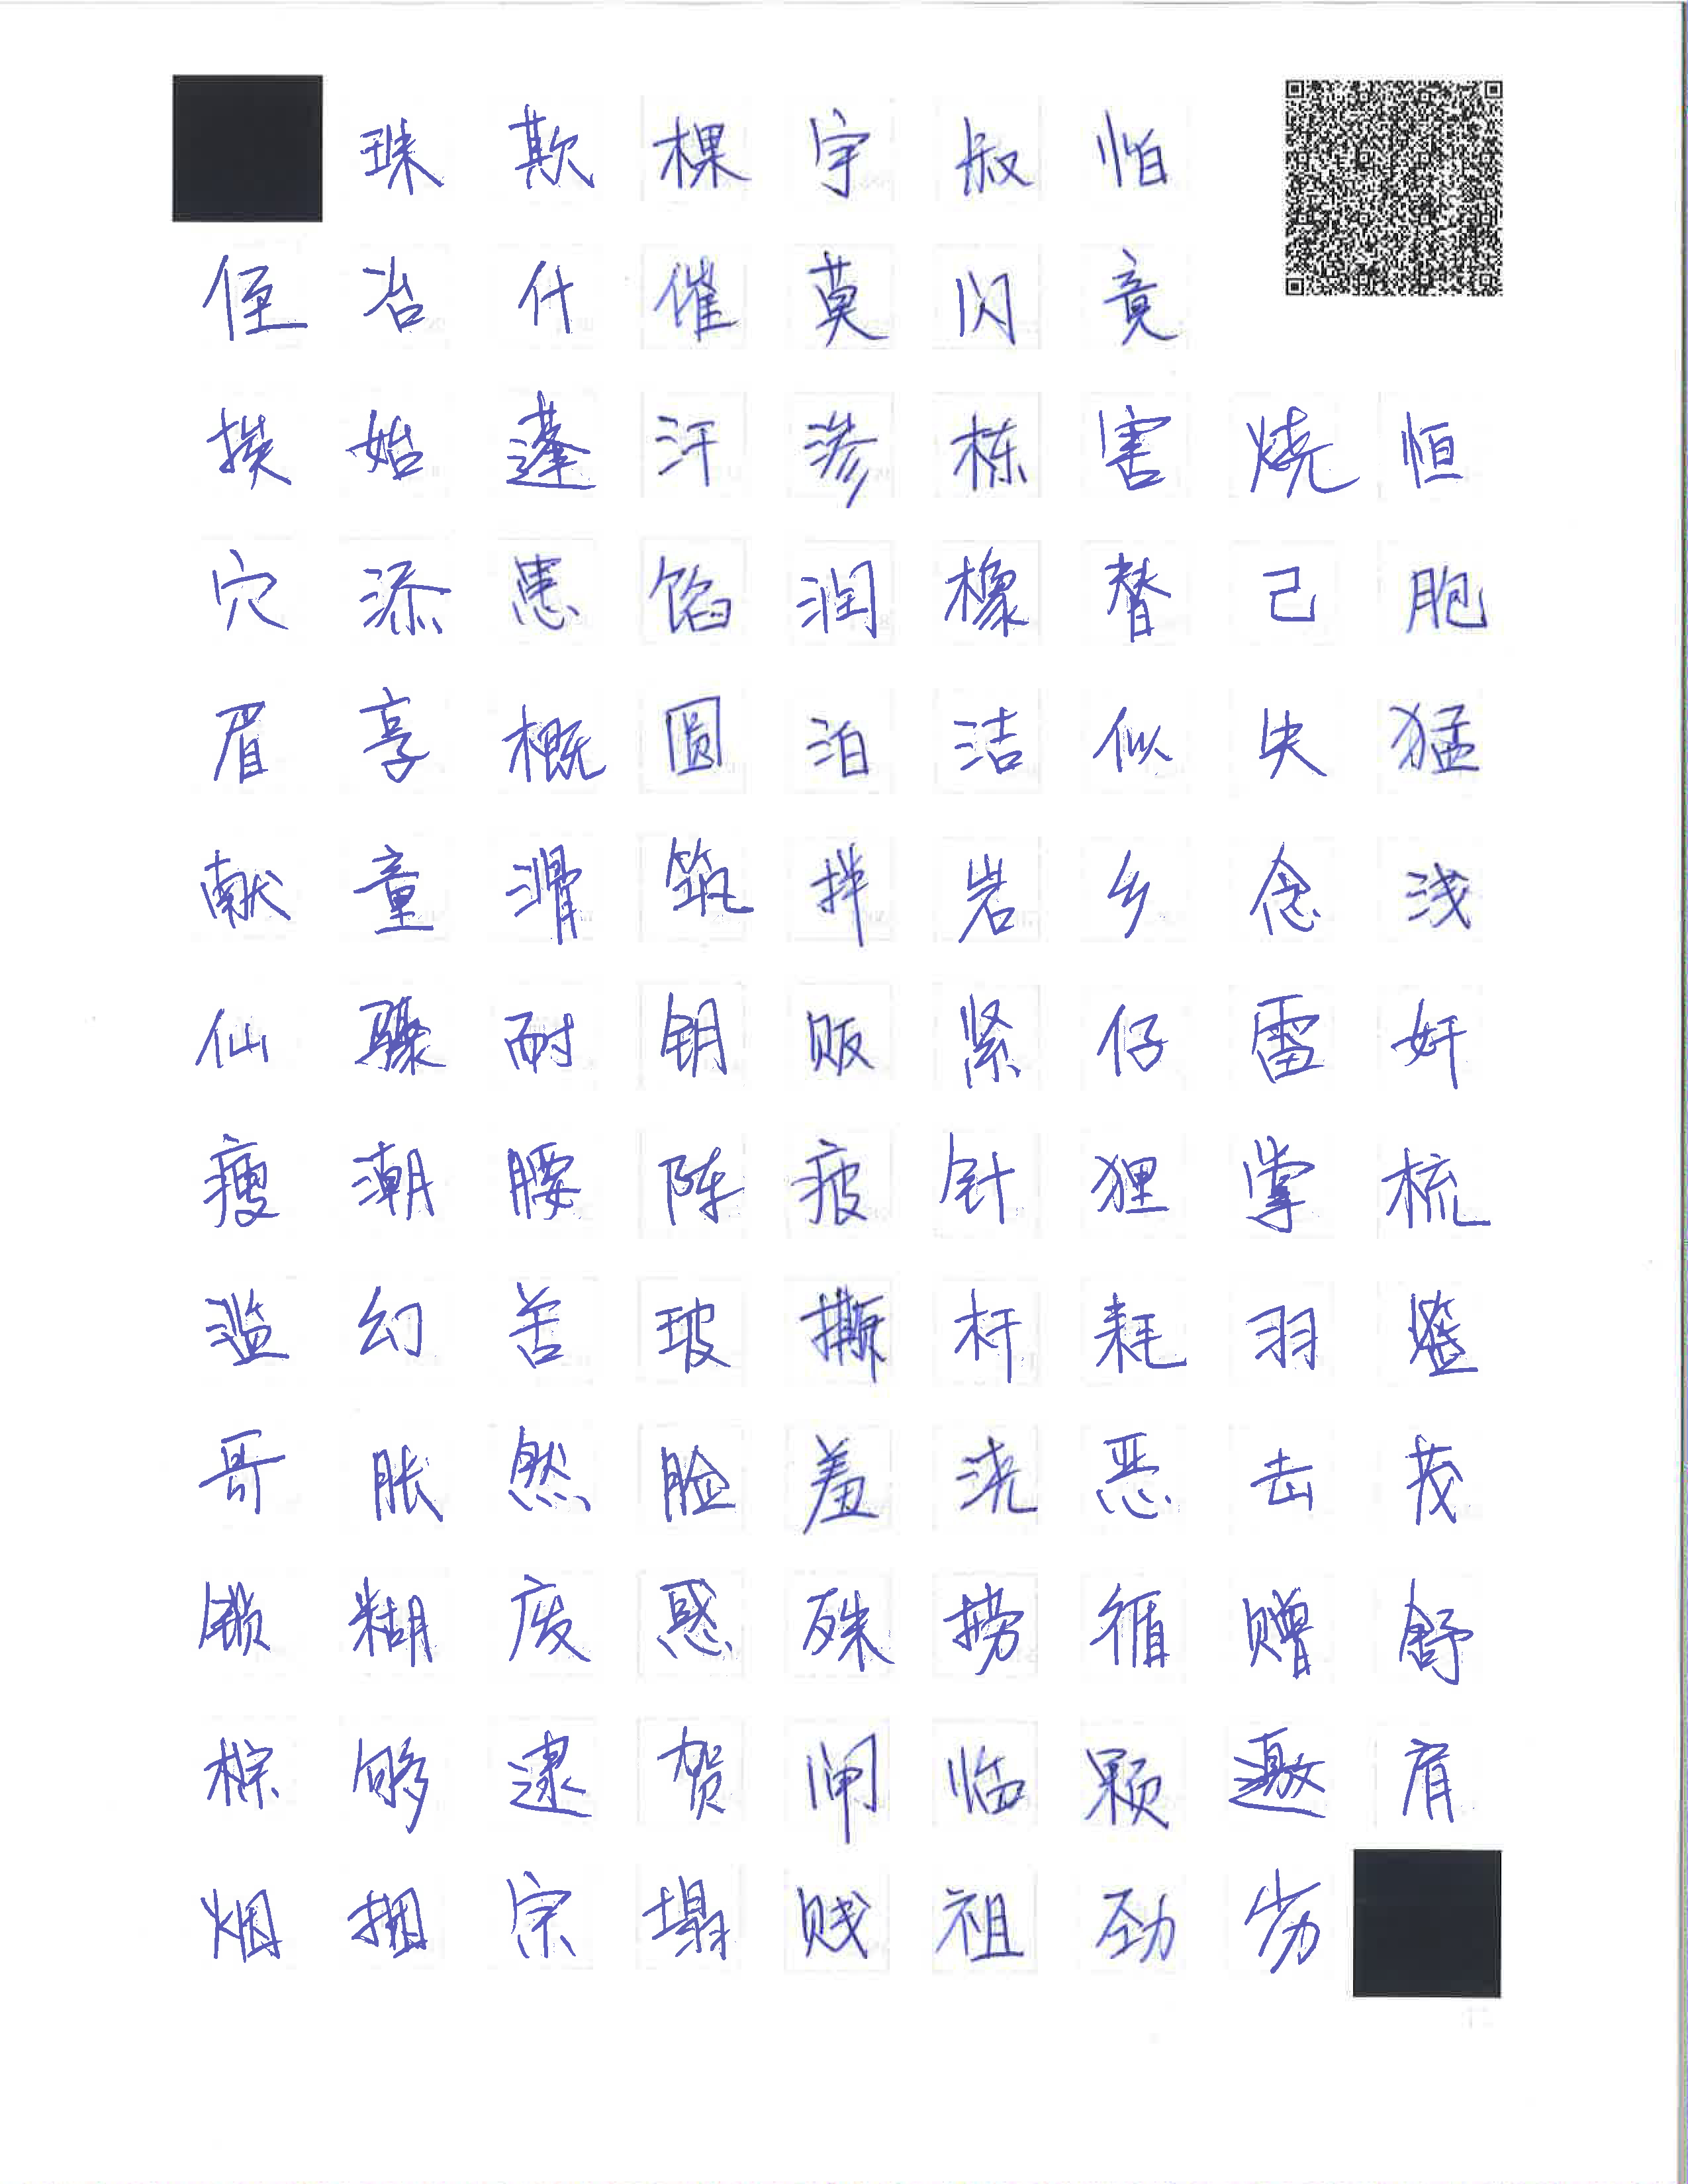 珠欺棵宇叔怕
侄冶什催莫闪竟
挨始蓬汗渗栋害烧恒
穴添患馅润橡替己胞
眉享概圆泊洁似失猛
献童滑筑拌岩乡念浅
仙骤耐钥贩紧仔雷奸
瘦潮腰阵疲针狸掌梳
滥幻苦玻撕杆耗羽
哥胀然脸羞浇恶击茂
锁糊废惑殊捞循赠舒
棕够逮贺闸临颗邀肩
烟捆宗塌贱祖劲劣